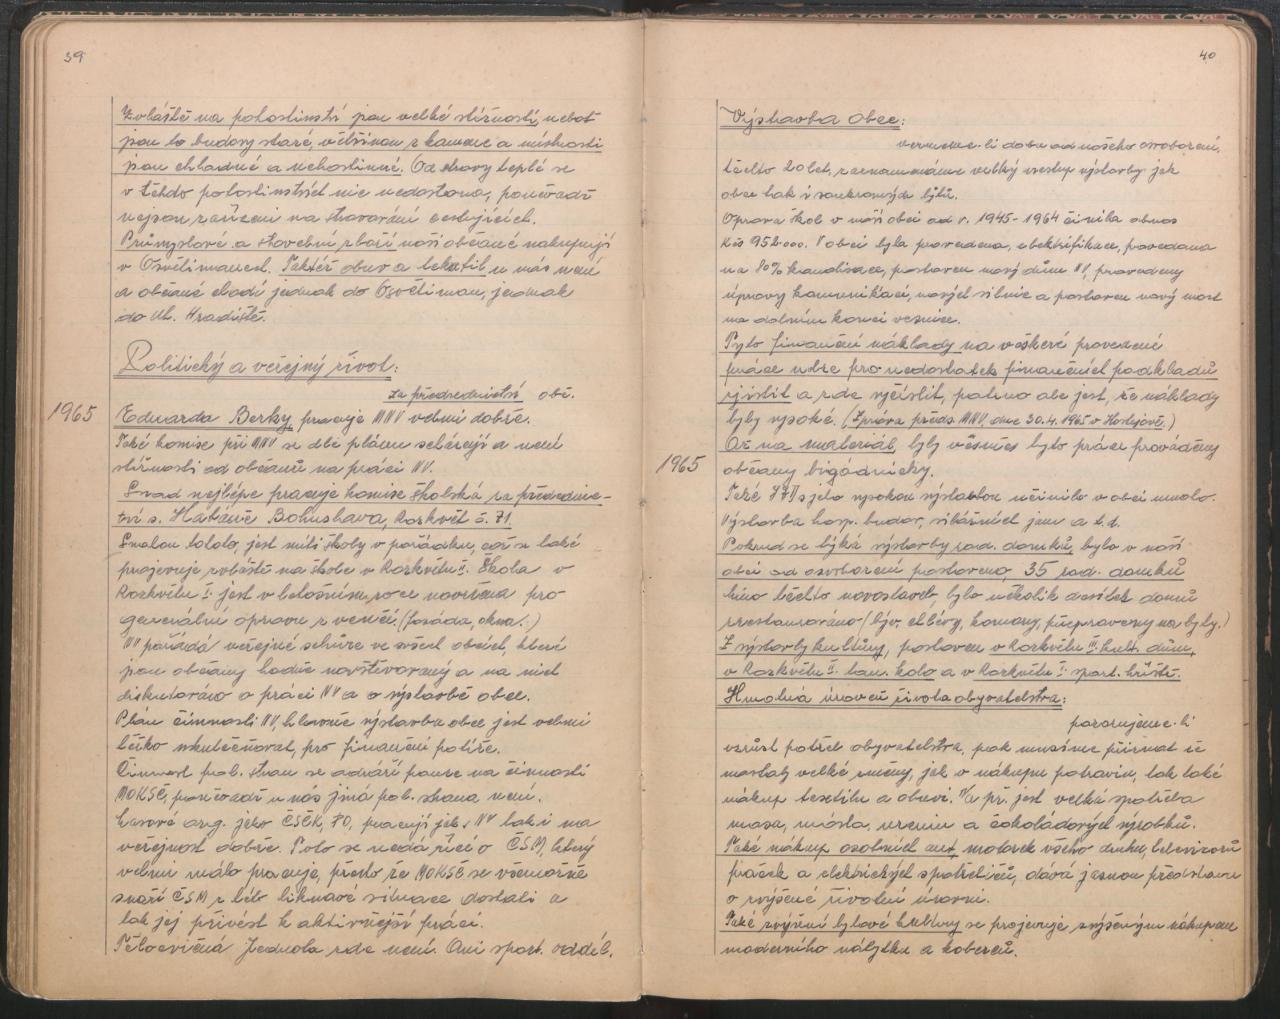 39
Zvláště na pohostinství jsou velké stížnosti, neboť
jsou to budovy staré, většinou z kamene a místnosti
jsou chladné a nehostinné. Od stravy teplé se
v těchto pohostinstvích nic nedostane, poněvadž
nejsou zařízeni na stravování cestujících.
Průmyslové a stavební zboží naši občané nakupují
v Osvětimanech. Taktéž obuv a textil, u nás není
a občané chodí jednak do Osvětiman, jednak
do Uh. Hradiště.
Politický a veřejný život:
za předsednictví obč.
1965 Eduarda Berky, pracuje MNV velmi dobře.
Také komise při MNV se dle plánu scházejí a není
stížností od občanů na práci NV.
Snad nejlépe pracuje komise školská za předsednic-
tví s. Habáně Bohuslava, Roskvět č. 71.
Snahou tohoto, jest míti školy v pořádku, což se také
projevuje zvláště na škole v Rozkvětu II. Škola v
Rozkvětu I. jest v letošním roce navržena pro
generální opravu z venčí. (fasáda, okna.)
NV pořádá veřejné schůze ve všech obcích, které
jsou občany hodně navštěvovány a na nich
diskutováno o práci NV a o výstavbě obce.
Plán činnosti NV, hlavně výstavba obce jest velmi
těžko uskutečňovat, pro finanční potíže.
Činnost pol. stran se odráží pouze na činnosti
MOKSČ, poněvadž u nás jiná pol. strana není.
Masové org. jako ČSČK, PO, pracují jak s NV tak i na
veřejnost dobře. Toto se nedá říci o ČSM, který
velmi málo pracuje, přesto že MOKSČ se všemožně
snaží ČSM z této liknavé situace dostati a
tak jej přivést k aktivnější práci.
Tělocvičná Jednota zde není. Ani sport. oddíl.
40
Výstavba obce:
vezmeme-li dobu od našeho osvobození,
těchto 20 let, zaznamenáme velký vzestup výstavby jak
obce tak i soukromých bytů.
Oprava škol v naší obci od r. 1945-1964 činila obnos
Kčs 952.000. V obci byla provedena, elektrifikace, provedana
na 80% kanalisace, postaven nový dům NV, provedeny
úpravy komunikací, nových silnic a postaven nový most
na dolním konci vesnice.
Tyto finanční náklady na veškeré provedené
práce nelze pro nedostatek finančních podkladů
zjistit a zde vyčíslit, patrno ale jest, že náklady
byly vysoké. (Zpráva předs. MNV, dne 30.4.1965 v Hostějově.)
1965 Až na materiál, byly většinou tyto práce prováděny
občany brigádnicky.
Také JZD svojeto vysokou výstavbou učinilo v obci mnoho.
Výstavba hosp. budov, silážních jam a t.d.
Pokud se týká výstavby rod. domků, bylo v naší
obci od osvobození postaveno, 35 rod. domků
mimo těchto novostaveb, bylo několik desítek domů
zrestaurováno (býv. chlévy, komory, přepraveny na byty.)
Z výstavby kultury, postaven v Rozkvětu III. kult. dům,
v Rozkvětu II. tan. kolo a v Rozkvětu I. sport. hřiště.
Hmotná úroveň života obyvatelstva:
pozorujeme-li
vzrůst potřeb obyvatelstva, pak musíme přiznat že
nastaly velké změny, jak v nákupu potravin, tak také
nákup textilu a obuvi. Na př. jest velká spotřeba
masa, másla, uzenin a čokoládových výrobků.
Také nákup osobních aut, motorek všeho druhu, televizorů
praček a elektrických spotřebičů, dává jasnou představu
o zvýšené životní úrovni.
Také zvýšení bytové kultury se projevuje zvýšeným nákupem
moderního nábytku a koberců.